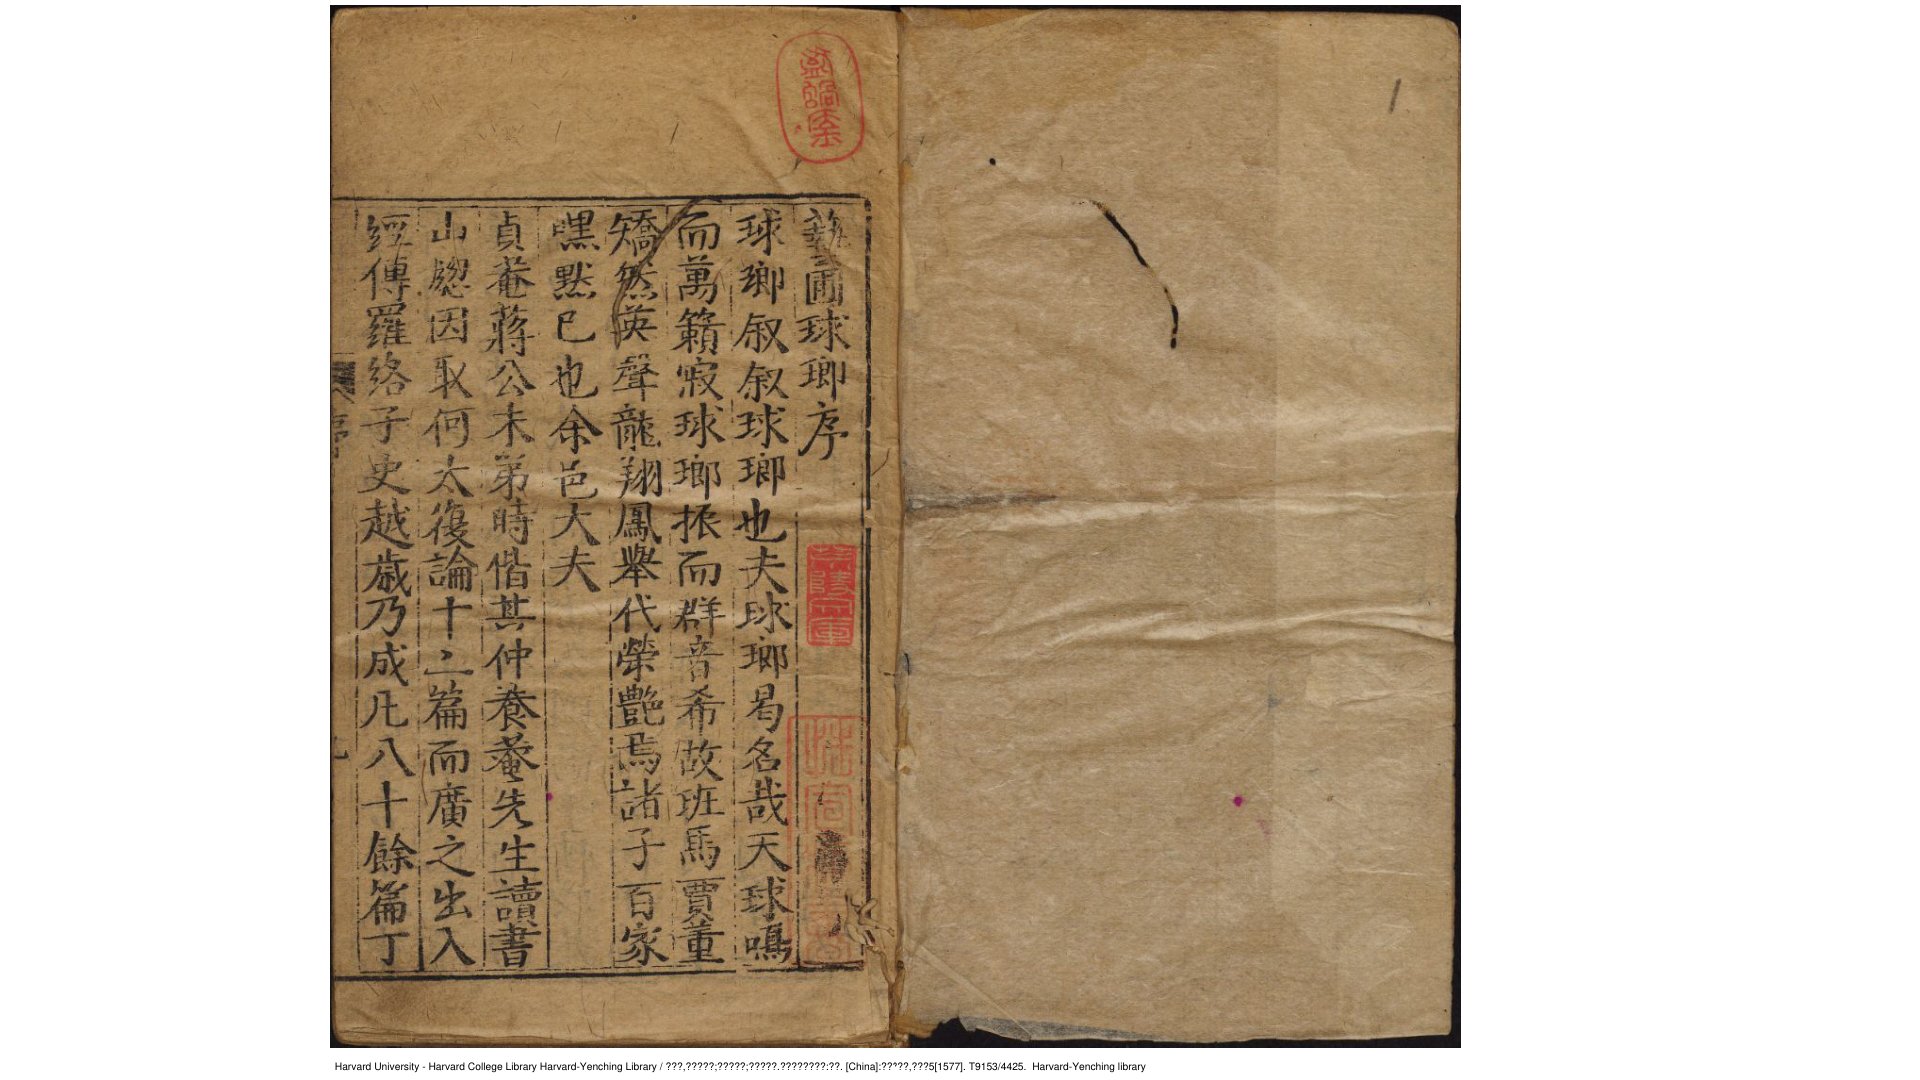 藝圃球瑯序
球瑯叙叙球瑯也夫球瑯曷名哉天球鳴
而萬籟寂球瑯振而群音希故班馬賈董
矯然英聲龍翔鳳舉代榮艷焉諸子百家
嘿默已也余邑大夫
貞菴蔣公未弟時偕其仲養菴先生讀書
山窓因取何太復論十二篇而廣之出入
經傳羅絡子史越歲乃成凡八十餘篇丁
序
1
Harvard University - Harvard College Library Harvard-Yenching Library / ???,?????;?????;?????.????????:??. [China]:?????,???5[1577]. T9153/4425. Harvard-Yenching library